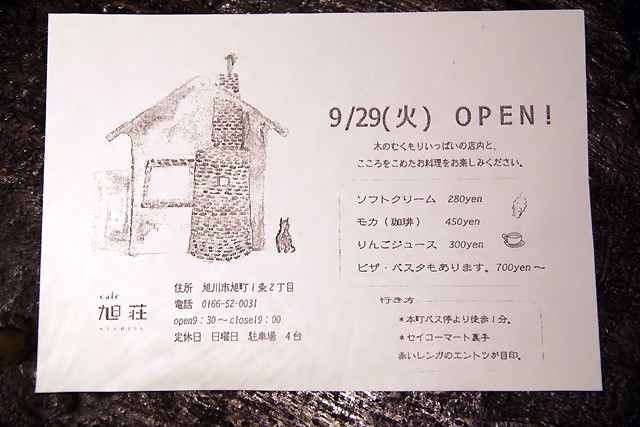 9/29(火) OPEN!
木のむくもりいっぱいの店内と、
こころをこめたお料理をお楽しみください。
ソフトクリーム 280yen
モカ（珈琲） 450yen
りんごジュース 300yen
ピザ・パスタもあります。700yen～
行き方
＊本町バス停より徒歩1分。
＊セイコーマート裏手
赤いレンガのエントツが目印。
café
旭荘
住所 旭川市旭町1条2丁目
電話 0166-52-0031
open9：30～close19：00
定休日 日曜日 駐車場 4台